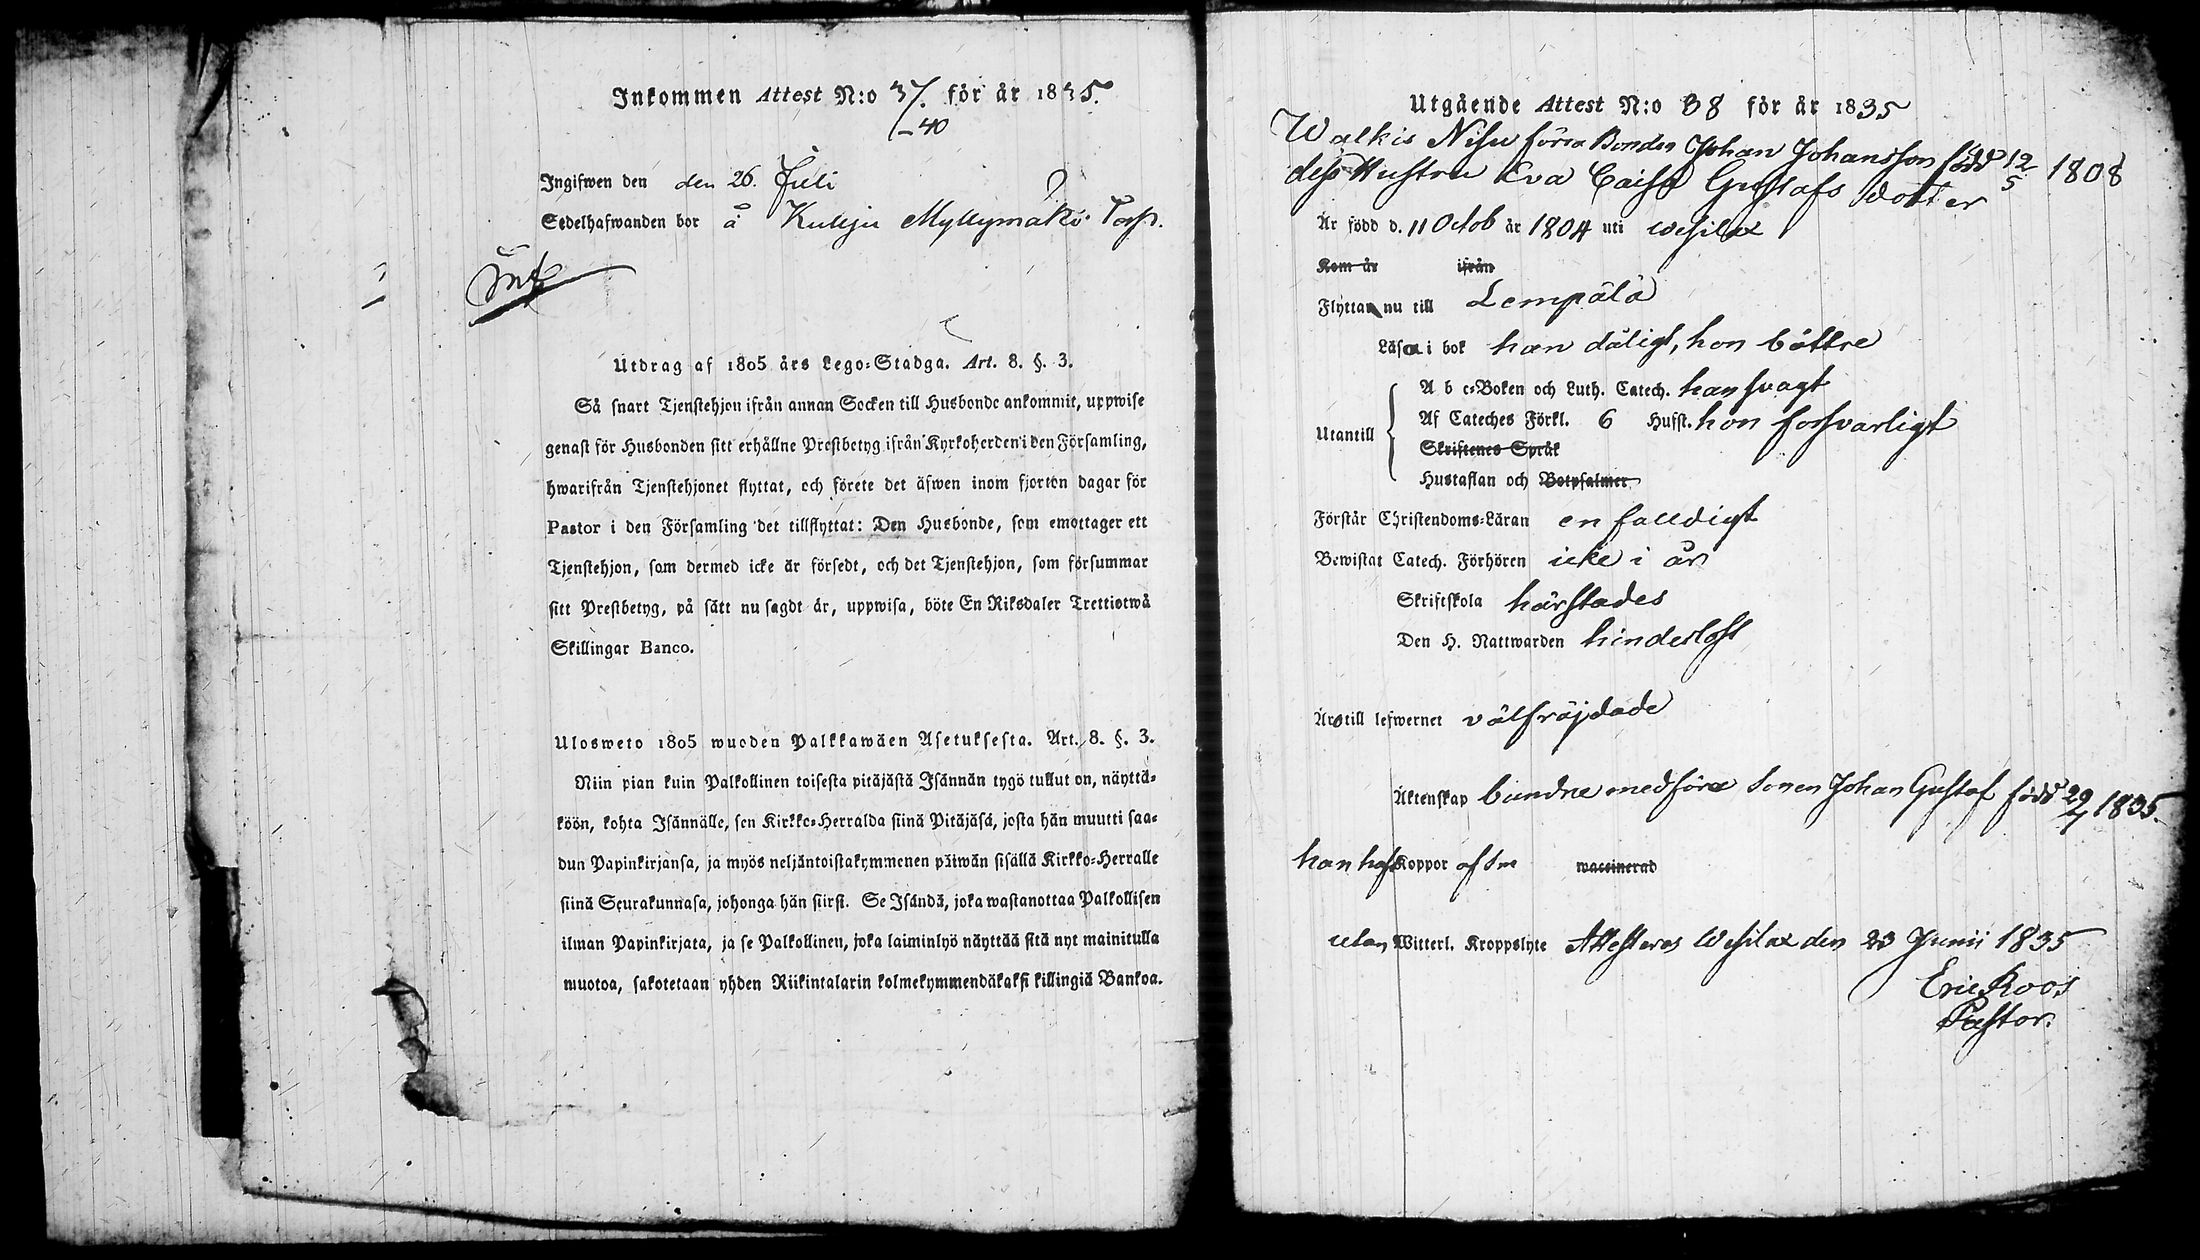 Inkommen Attest N:o 37. för år 1835.
– 40
Ingifwen den den 26. Juli
Sedelhafwanden bor å Kulju Myllymäki Torp.
Utdrag af 1805 års Lego-Stadga. Art. 8. §. 3.
Så snart Tjenstehjon ifrån annan Socken till Husbonde ankommit, uppwise
genast för Husbonden sitt erhållne Prestbetyg ifrån Kyrkoherden i den Församling,
hwarifrån Tjenstehjonet flyttat, och förete det äfwen inom fjorton dagar för
Pastor i den Församling det tillflyttat: Den Husbonde, som emottager ett
Tjenstehjon, som dermed icke är försedt, och det Tjenstehjon, som försummar
sitt Prestbetyg, på sätt nu sagdt är, uppwisa, böte En Riksdaler Trettiotwå
Skillingar Banco.
Ulosweto 1805 wuoden Palkkawäen Asetuksesta. Art. 8. §. 3.
Niin pian kuin Palkollinen toisesta pitäjästä Isännän tygö tullut on, näyttä-
köön, kohta Isännälle, sen Kirkko-Herralda siinä Pitäjäsä, josta hän muutti saa-
dun Papinkirjansa, ja myös neljäntoistakymmenen päiwän sisällä Kirkko-Herralle
siinä Seurakunnasa, johonga hän siirsi. Se Isändä, joka wastanottaa Palkollisen
ilman Papinkirjata, ja se Palkollinen, joka laiminlyö näyttää sitä nyt mainitulla
muotoa, sakotetaan yhden Riikintalarin kolmekymmendäkaksi killingiä Bankoa.
Utgående Attest N:o 38 för år 1835
Walkis Nisu förra Bonden Johan Johansson född 12/5 1808
dess Hustru Eva Caisa Gustafs dotter
Är född d. 11 Octob år 1804 uti Wesilax
Kom år ifrån
Flyttar nu till Lempälä
Läsa i bok han dåligt, hon bättre
Utantill
A b c-Boken och Luth. Catech. han svagt
Af Cateches Förkl. 6 Hufst. hon forsvarligt
Skriftenes Språk
Hustaflan och Botpsalmer
Förstår Christendoms-Läran enfalldigt
Bewistat Catech. Förhören icke i år
Skriftskola härstädes
Den H. Nattwarden hinderlöst
Äro till lefwernet välfräjdade
Äktenskap bundne medföra Sonen Johan Gustaf född 29/1 1835.
han haft Koppor af Sne waccinerad
utan Witterl. Kroppslyte Attesteras Wesilax den 23 Junii 1835
Eric Roos
Pastor.